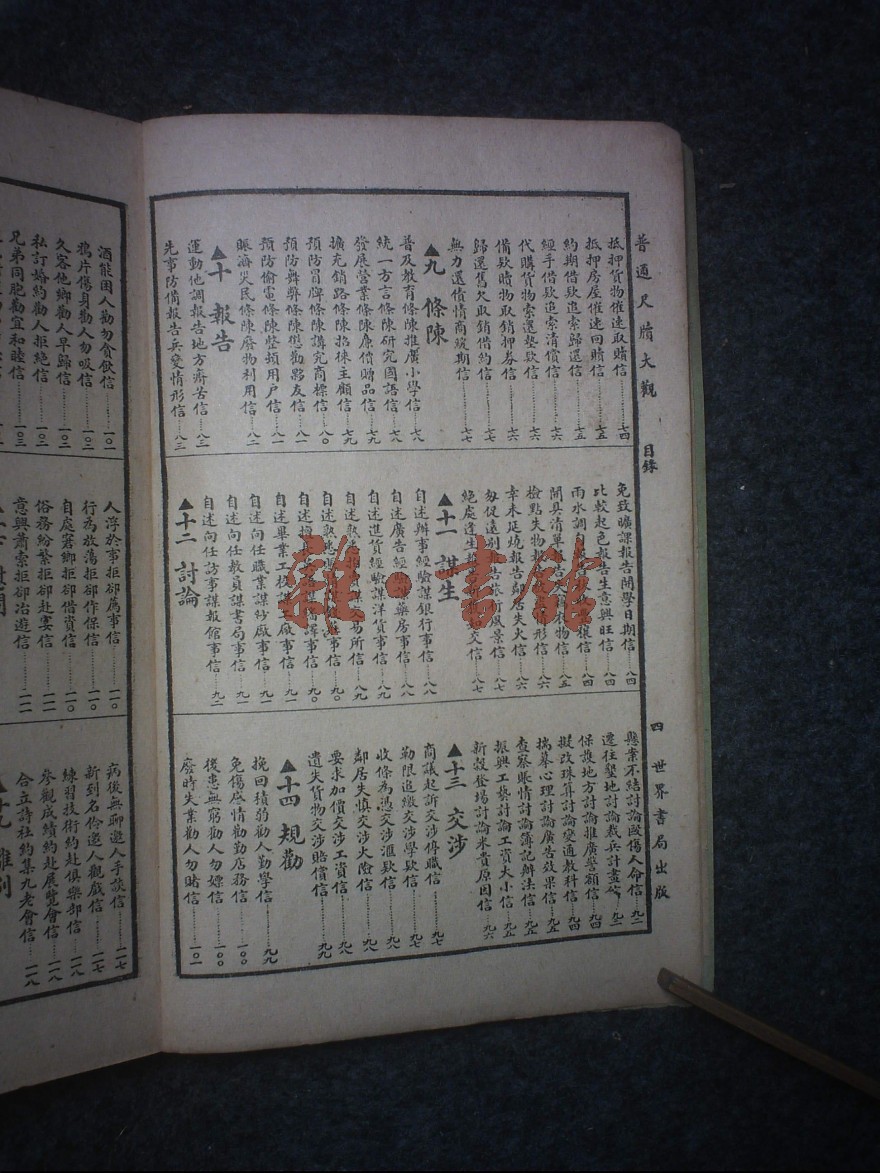 普通尺牘大觀
目錄
四
世界書局出版
抵押貨物催速取贖信……七四
抵押房屋催速回贖信……七五
約期借款追索歸還信……七五
經手借款追索清償信……七六
代購貨物索還墊款信……七六
備款贖物取銷押券信……七六
歸還舊欠取銷借約信……七七
無力還債情商緩期信……七七
▲九 條陳
普及教育條陳推廣小學信……七八
統一方言條陳研究國語信……七八
發展營業條陳廉價贈品信……七九
擴充銷路條陳招徠主顧信……七九
預防冒牌條陳講究商標信……八〇
預防舞弊條陳懲勸夥友信……八一
預防偷電條陳整頓用戶信……八一
賑濟災民條陳廢物利用信……八二
▲十 報告
運動他調報告地方疾苦信……八三
先事防備報告兵變情形信……八三
免致曠課報告開學日期信……八四
比較起色報告生意興旺信……八四
雨水調
開具清單
檢點失物
幸未延燒報告鄰居失火信……八六
匆促遠別
絕處逢生
▲十一 謀生
自述辦事經驗謀銀行事信……八八
自述廣告經驗謀藥房事信……八八
自述進貨經驗謀洋貨事信……八九
自述熟悉
自述熟悉
自述
自述畢業工校謀工廠事信……九一
自述向任職業謀紗廠事信……九一
自述向任教員謀書局事信……九一
自述向任訪事謀報館事信……九二
▲十二 討論
懸案不結討論毆傷人命信……九二
遷往墾地討論裁兵計畫信……九三
保護地方討論推廣警額信……九四
擬改珠算討論變通教科信……九四
揣摹心理討論廣告效果信……九五
查察賬情討論簿記辦法信……九五
振興工藝討論工資大小信……九五
新穀登場討論米貴原因信……九六
▲十三 交涉
商議起訴交涉停職信……九七
勒限追繳交涉學款信……九七
收條為憑交涉匯款信……九八
鄰居失慎交涉火險信……九八
要求加價交涉工資信……九八
遺失貨物交涉賠償信……九九
▲十四 規勸
挽回積弱勸人勤學信……九九
免傷感情勸勤店務信……一〇〇
後患無窮勸人勿嫖信……一〇〇
廢時失業勸人勿賭信……一〇一
酒能困人勸勿貪飲信……一〇一
鴉片傷身勸人勿吸信……一〇二
久客他鄉勸人早歸信……一〇二
私訂婚約勸人拒絕信……一〇二
兄弟同胞勸宜和睦信……一〇三
人浮於事拒卻薦事信……一一〇
行為放蕩拒卻作保信……一一〇
自處窘鄉拒卻借貸信……一一〇
俗務紛繁拒卻赴宴信……一一一
意興蕭索拒卻冶遊信……一一二
病後無聊邀人手談信……一一七
新到名伶邀人觀戲信……一一七
練習技術約赴俱樂部信……一一八
參觀成績約赴展覽會信……一一八
合立詩社約集九老會信……一一八
▲十九 離別
雜·書館